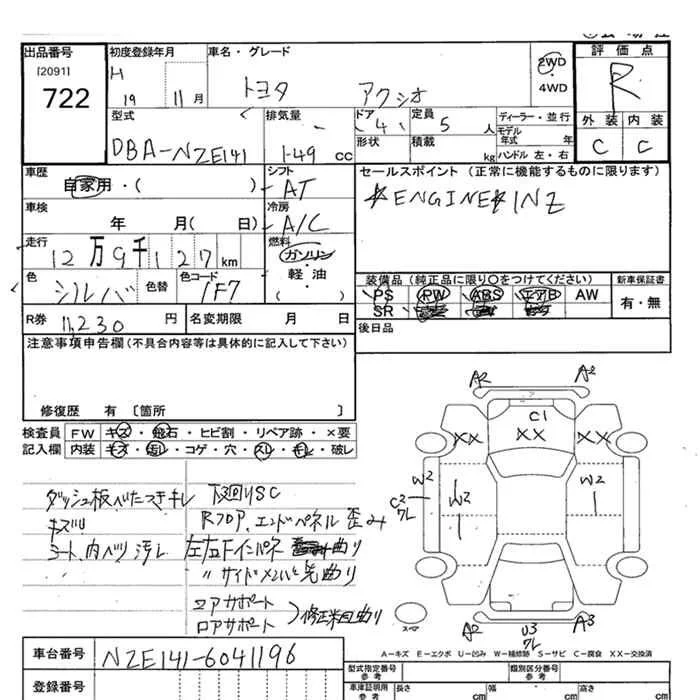 出品番号
(20911
722
初度登録年月
H
19 11月
車名・グレード
トヨタ アクシオ
2WD
4WD
評価点
R
外装 内装
C C
型式
DBA-NZE141
排気量
1.49 cc
ドア
4
形状
定員
5 人
積載
kg
ディーラー・並行
モデル年式 年
ハンドル 左・右
車歴
自家用・( )
シフト
AT
セールスポイント (正常に機能するものに限ります)
*ENGINE* 1NZ
車検
年 月( 日)
冷房
A/C
走行
12万9千127km
燃料
ガソリン
軽・油
( )
色
シルバ
色替
色コード
1F7
装備品 (純正品に限り〇をつけてください)
PS PW ABS エアB AW
SR
新車保証書
有・無
R券 11,230 円
名変期限 月 日
後日品
注意事項申告欄(不具合内容等は具体的に記入して下さい)
修復歴 有 〔箇所 〕
検査員
記入欄
FW キズ・飛石・ヒビ割・リペア跡・×要
内装 キズ・汚レ・コゲ・穴・スレ・キレ・破レ
ダッシュ板べたつきキレ
キズ
シート、内ベリ汚レ
下廻りSC
Rフロア、エンドパネル歪み
左右Fインパネ 曲り
〃サイドメンバ先曲り
コアサポート
ロアサポート
A2 A2
C1
XX XX XX
W2 W2 W2
C2
ワレ
A2 U3 A3
ワレ
スペア
A-キズ E-エクボ U-凹み W-補修跡 S-サビ C-腐食 XX-交換済
車台番号 NZE141-6041196
登録番号
型式指定番号
参考
類別区分番号
参考
車庫証明用
参考
長さ cm 幅 cm 高さ cm